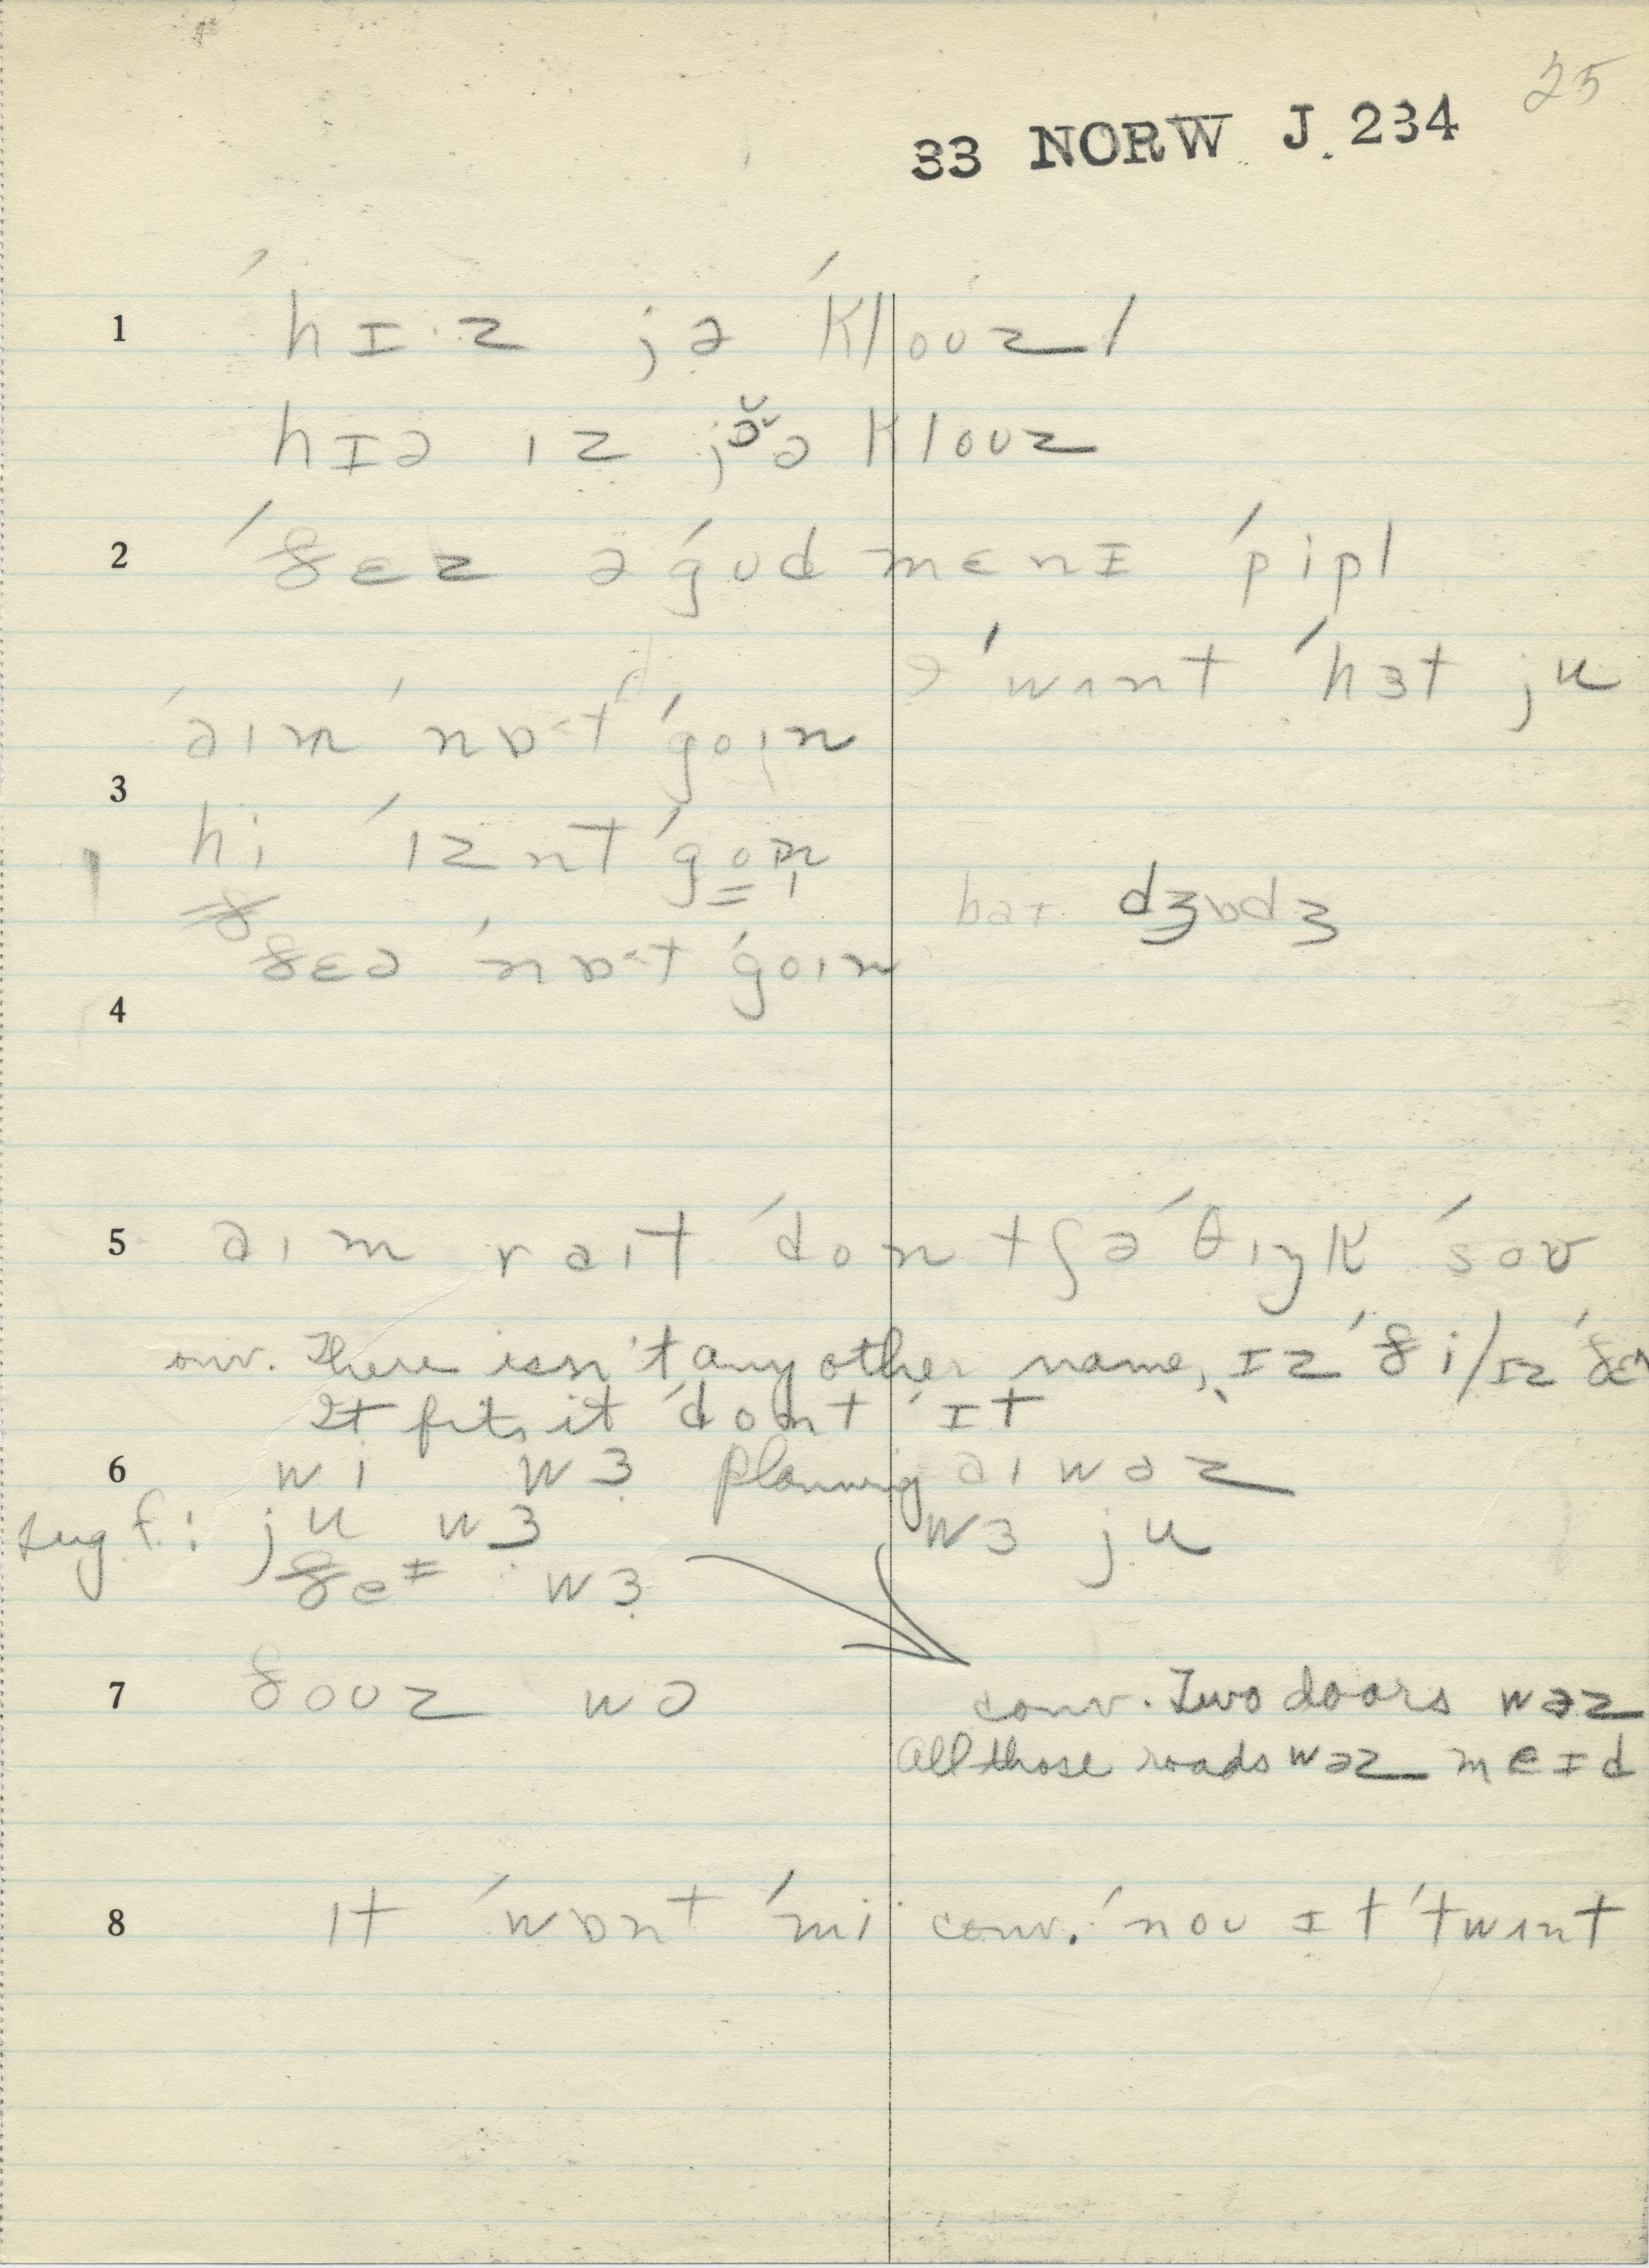 25
33 NORW J. 234
1 ˈhɪ·z jə ˈklouz/
hɪə ɪz jɔ̆ə klouz
2 ˈðɛz ə ˈgud mɛnɪ ˈpipl
ɪ ˈwɪnt ˈhɜt ju
ˈaɪm ˈnɒ·t ˈgoɪn
3
hi ˈɪznt ˈgoɪn
baɪ dʒɒdʒ
ðɛə ˈnɒ·t ˈgoɪn
4
5 aɪm raɪt ˈdon tʃə ˈθɪŋk ˈsou
conv. There isn't any other name, ɪz ˈði/ɪz ˈðɛə
It fits it ˈdont ˈɪt
6 wi wɜ planning aɪ wəz
sug f.: ju wɜ wɜ ju
ðeɪ wɜ
7 ðouz wə conv. Two doors wəz
All those roads wəz meɪd
8 ɪt ˈwɒnt ˈmi conv. ˈnou ɪt ˈtwɪnt